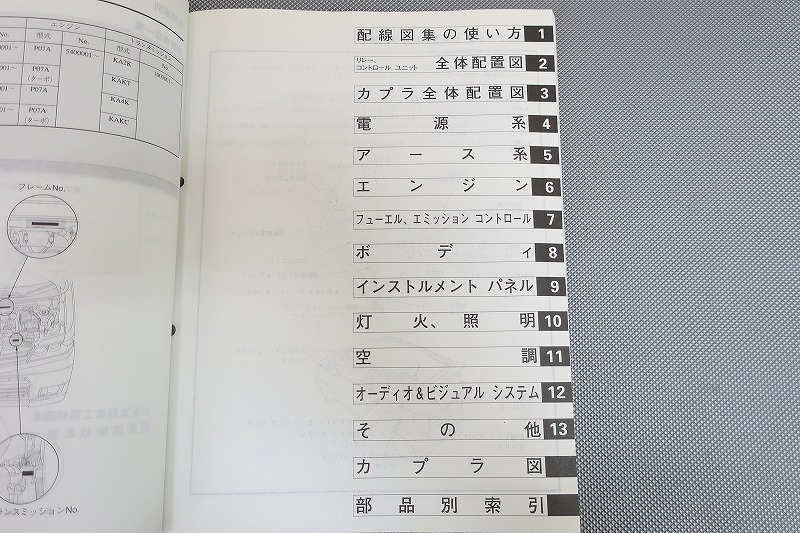 エンジン
トランスミッション
No.
型式
No.
型式
No.
P07A
5400001~
KA2K
P07A
(ターボ)
KAKT
P07A
KA4K
P07A
(ターボ)
KAKC
フレームNo.
ランスミッションNo.
配線図集の使い方 1
リレー、
コントロール ユニット 全体配置図 2
カプラ全体配置図 3
電源系 4
アース系 5
エンジン 6
フューエル、エミッション コントロール 7
ボディ 8
インストルメント パネル 9
灯火、照明 10
空調 11
オーディオ&ビジュアル システム 12
その他 13
カプラ図
部品別索引